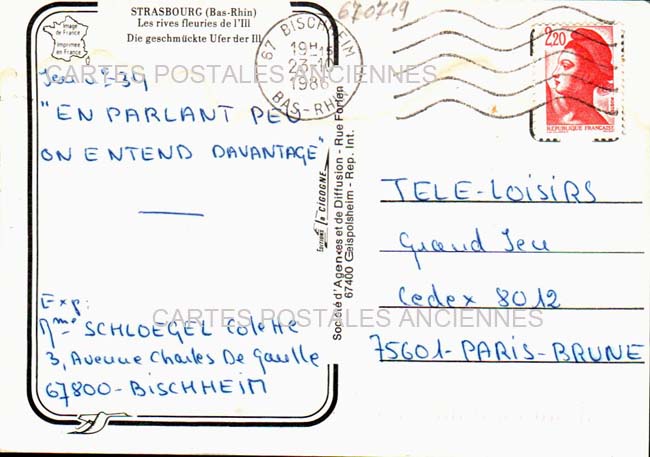 STRASBOURG (Bas-Rhin)
Les rives fleuries de l'Ill
Die geschmückte Ufer der Ill
Image
de France
Imprimée
en France
670719
67 BISCHHEIM
19H15
23-10
1986
BAS-RHIN
2,20
REPUBLIQUE FRANÇAISE
Jeu n° 34
CARTES POSTALES ANCIENNES
"EN PARLANT PEU
ON ENTEND DAVANTAGE"
Exp:
Mme SCHLOEGEL Colette
3, Avenue Charles De Gaulle
67800-BISCHHEIM
Editions la CIGOGNE
Société d'Agences et de Diffusion - Rue Forlen
67400 Geispolsheim - Rep. Int.
TELE-LOISIRS
Grand Jeu
Cedex 8012
75601-PARIS-BRUNE
CARTES POSTALES ANCIENNES